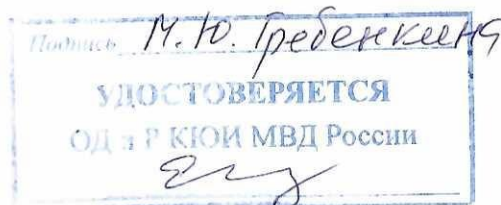 Подпись М.Ю. Гребенкина
УДОСТОВЕРЯЕТСЯ
ОД и Р КЮИ МВД России